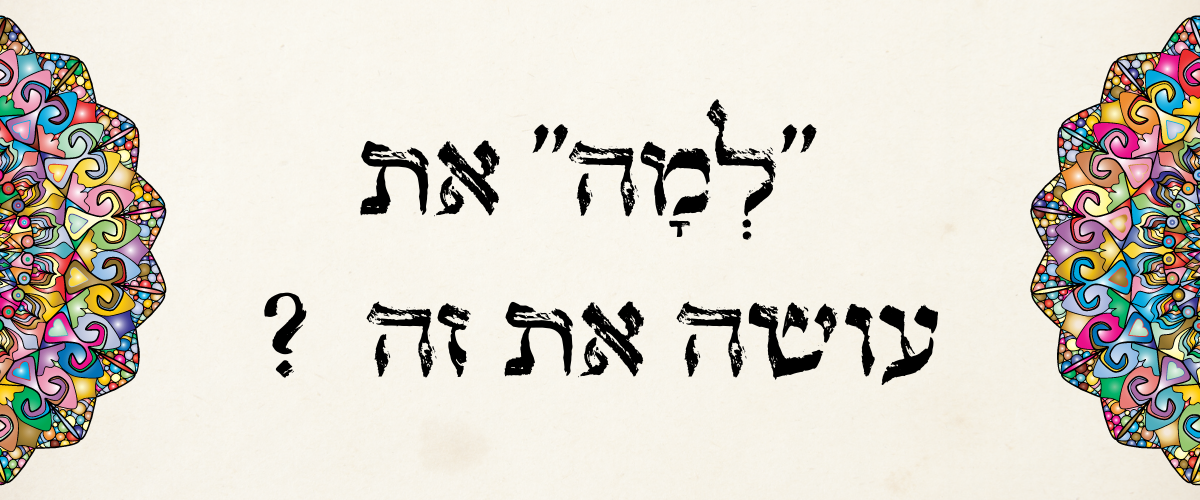 "לְמָה" את
עושה את זה ?